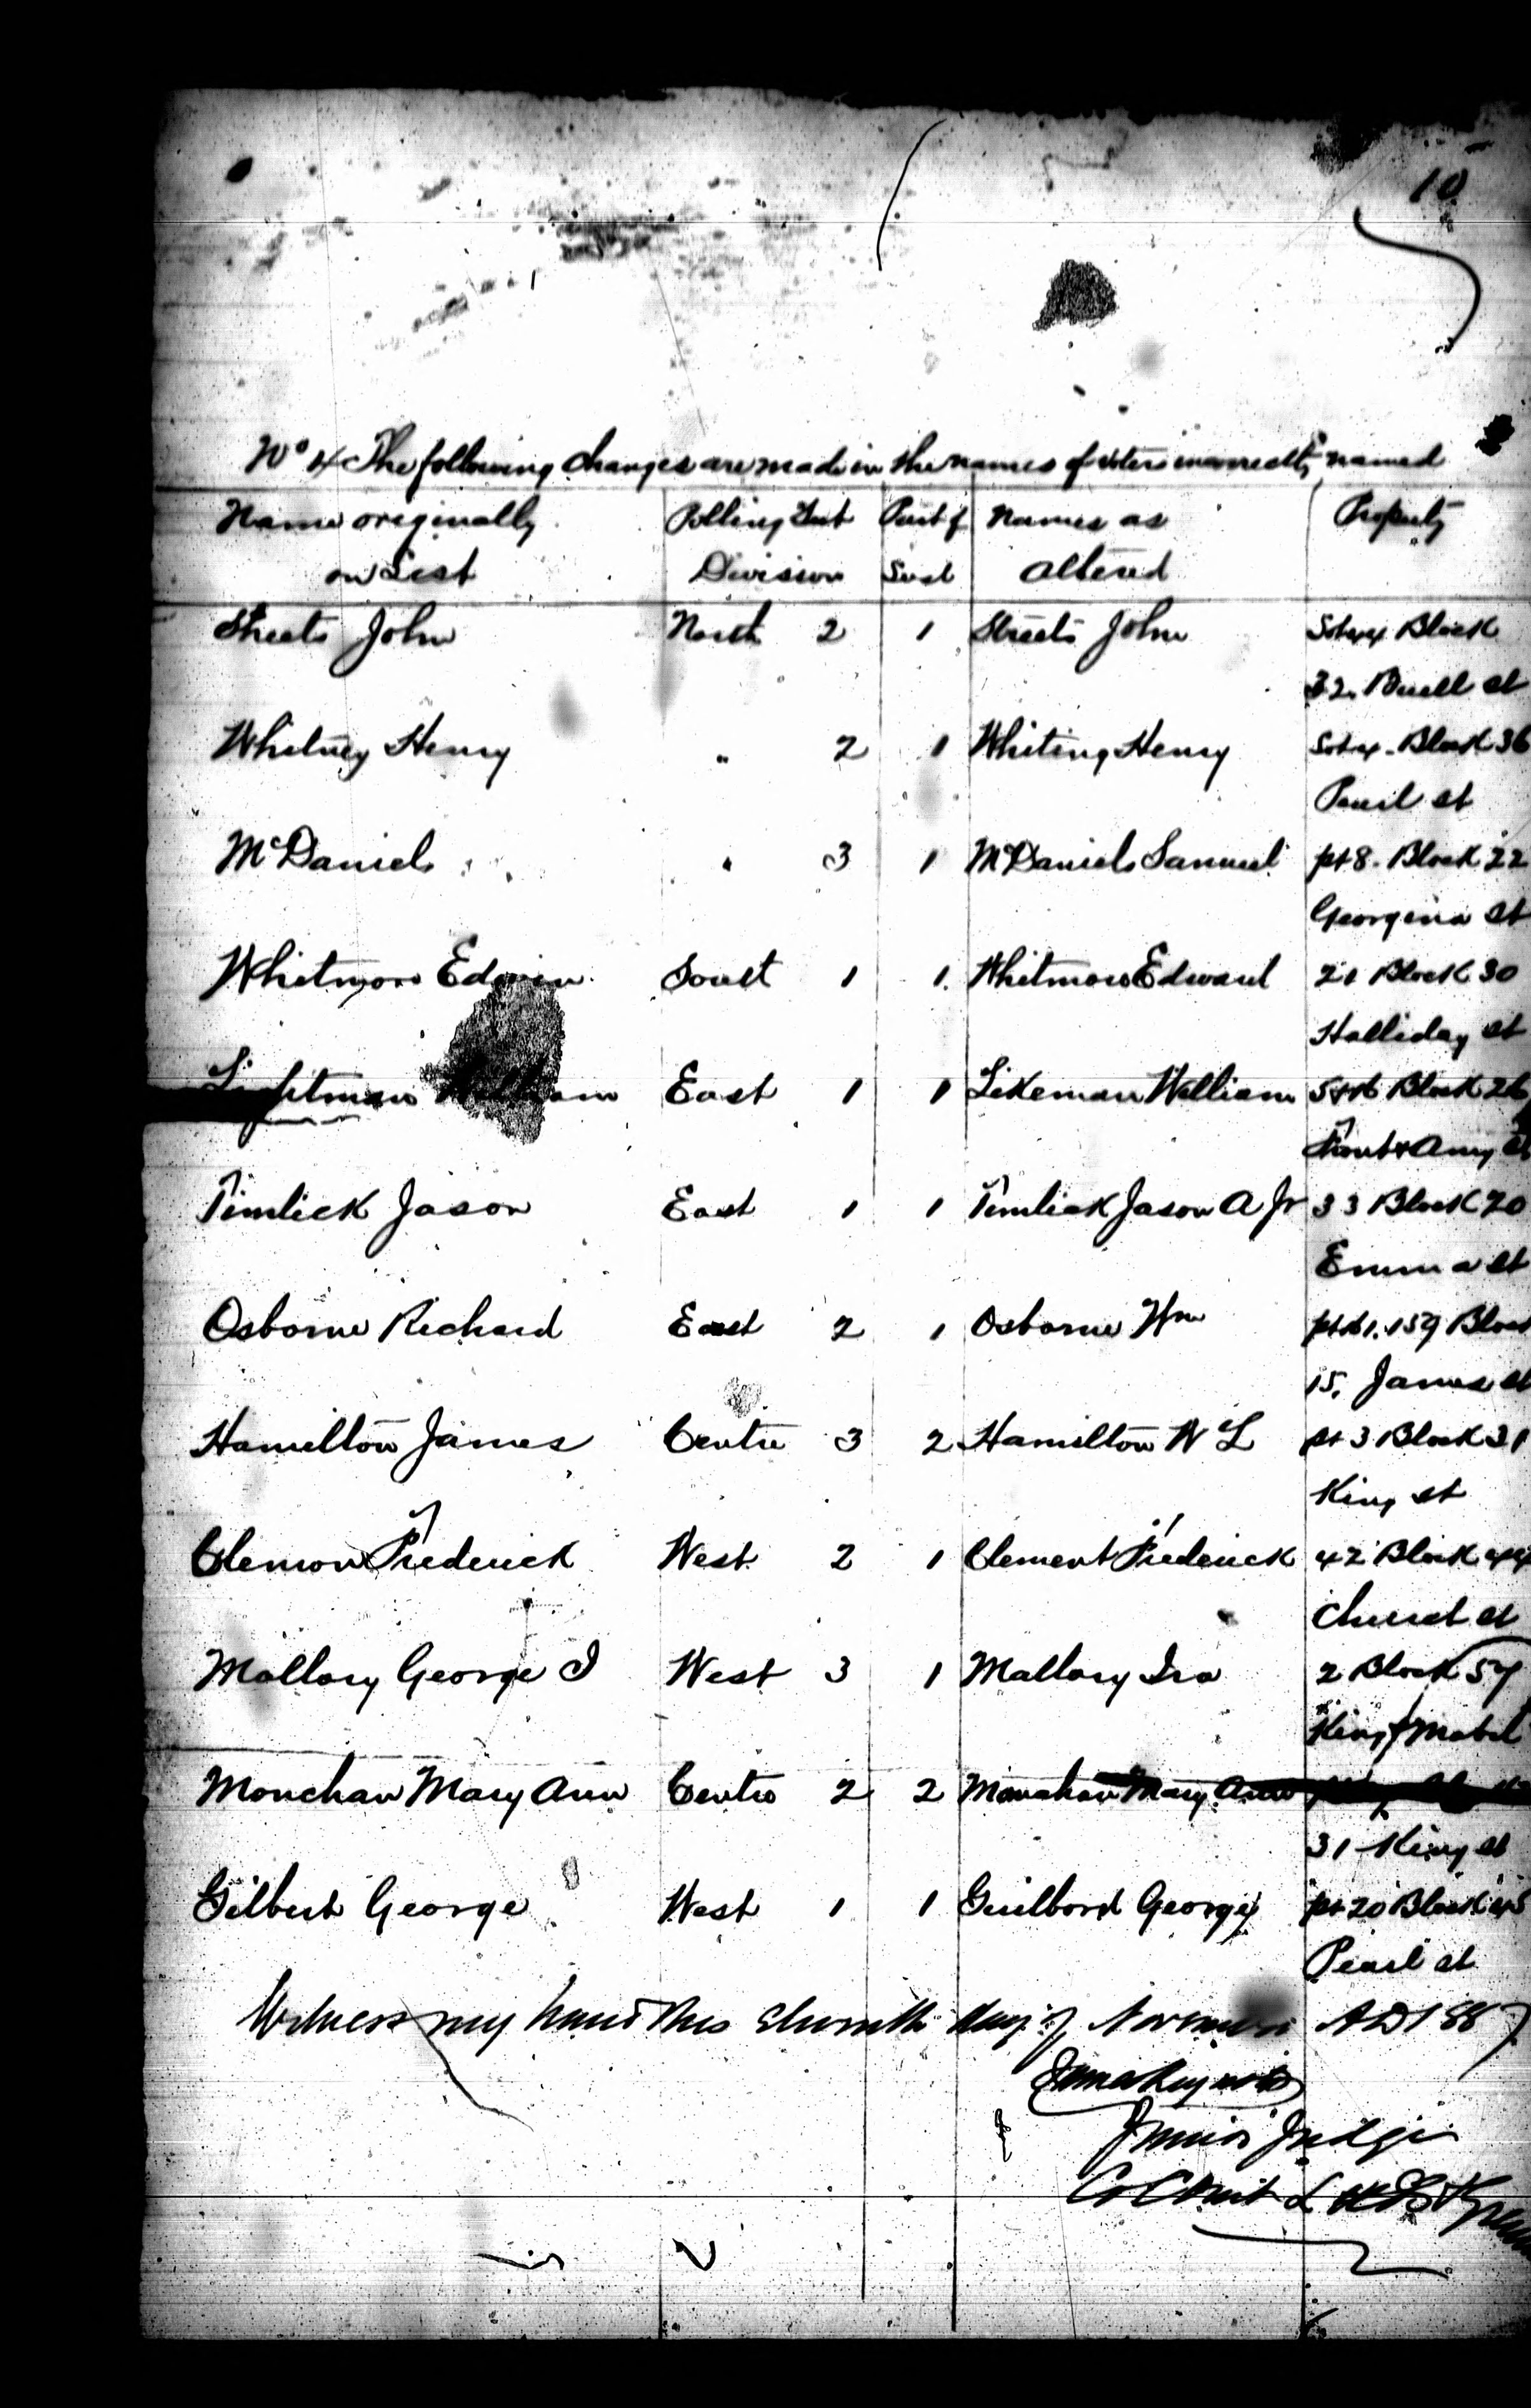 10
No 4 The following changes are made in the names of voters incorrectly named
Name originally Polling Sub Part of Names as Property
on List Division List altered
Streets John North 2 1 Streets John Block
32. Buell st
Whitney Henry " 2 1 Whiting Henry Block 36
Pearl st
McDaniels " 3 1 McDaniels Samuel pt 8. Block 22
Georgina st
Whitmore Edwin South 1 1. Whitmore Edward 21 Block 30
Halliday st
William East 1 1 Likeman William 5 & 6 Block 26
Front & Amy st
Timlick Jason East 1 1 Timlick Jason A Jr 33 Block 70
Emma st
Osborne Richard East 2 1 Osborne Wm Block
15. James st
Hamilton James Centre 3 2 Hamilton W L pt 3 Block 31
King st
Clemon Frederick West 2 1 Clement Frederick 42 Block 44
Church st
Mallory George I West 3 1 Mallory Ira 2 Block 57
King & Mabel
Monehan Mary Ann Centre 2 2 Monahan Mary Ann
31 King st
Gilbert George West 1 1 Guilbord George pt 20 Block 45
Pearl st
Witness my hand this eleventh day of November AD 1887
Junior Judge
Co Court L &